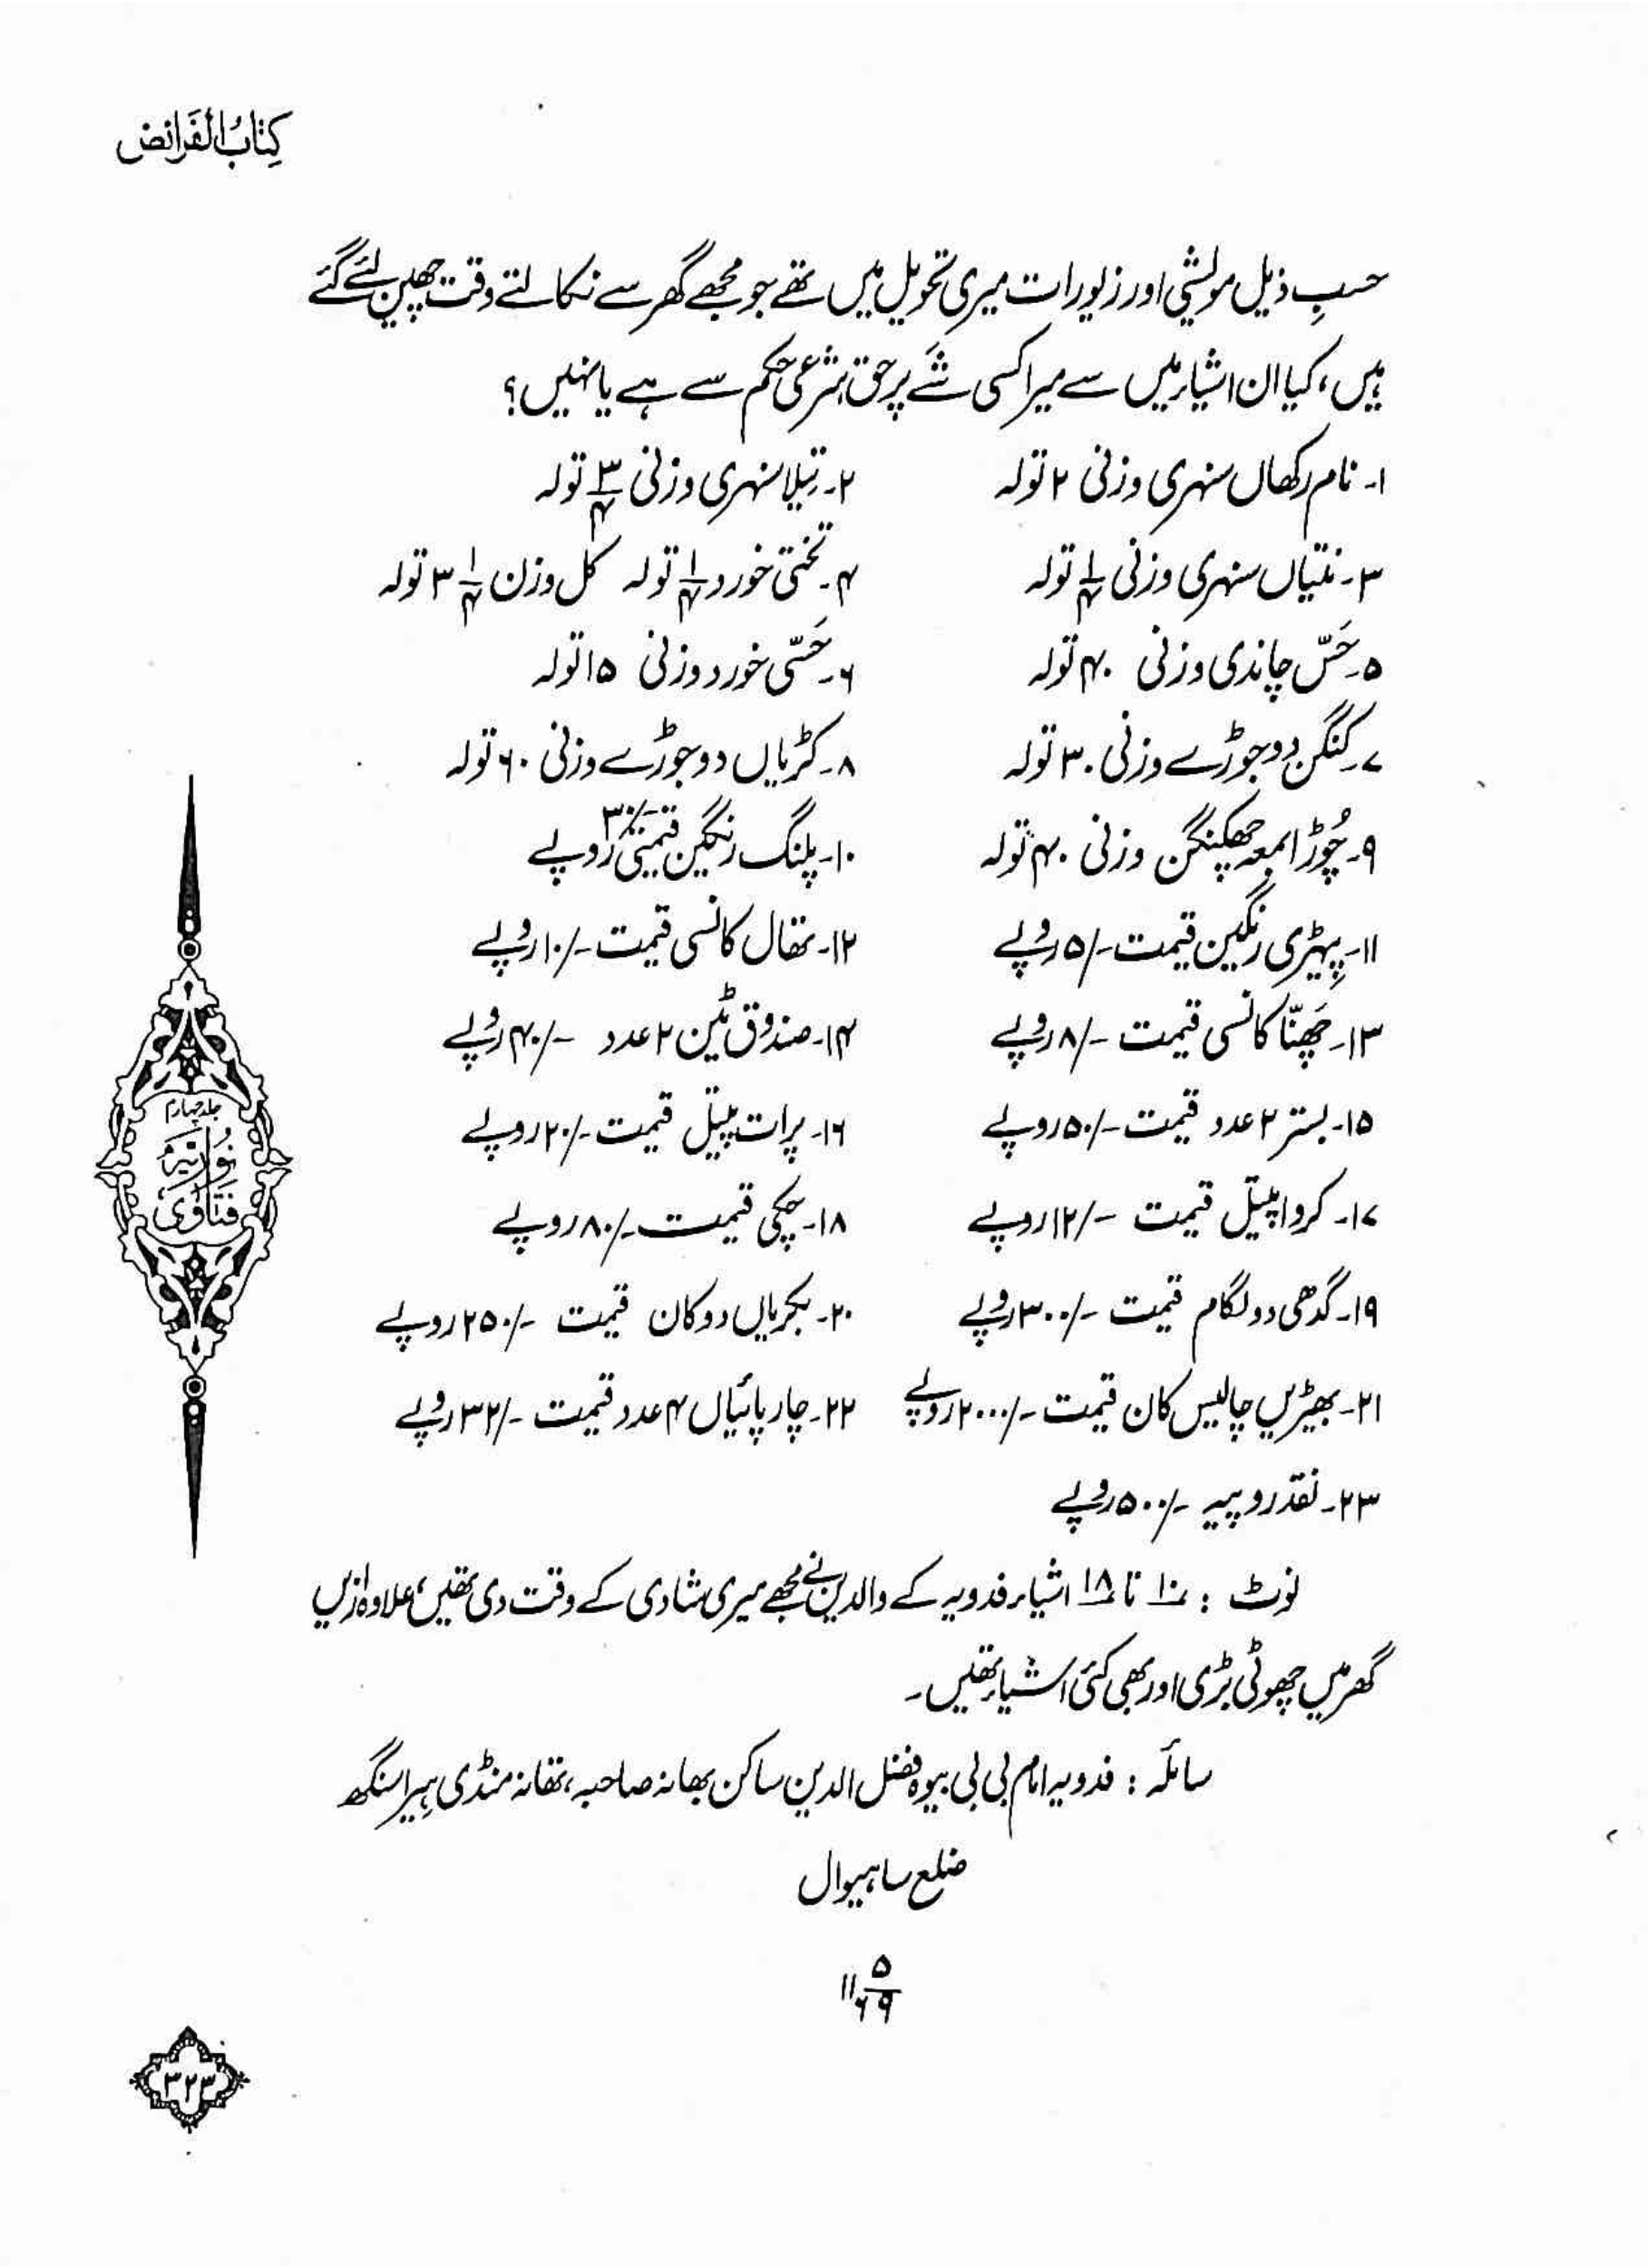 کِتَابُ الْفَرَائض
حسبِ ذیل مویشی اور زیورات میری تحویل میں تھے جو مجھے گھر سے نکالتے وقت چھین لئے گئے
ہیں، کیا ان اشیاء میں سے میرا کسی شَے پر حق شرعی حکم سے ہے یا نہیں؟
۱۔ نام رکھاں سنہری وزنی ۲ تولہ ۲۔ تیلا سنہری وزنی ۳/۴ تولہ
۳۔ نتیاں سنہری وزنی ۱/۴ تولہ ۴۔ تختی خورد ۱/۴ تولہ کل وزن ۱/۴ ۳ تولہ
۵۔ حَسّ چاندی وزنی ۴۰ تولہ ۶۔ حَسّی خورد وزنی ۱۵ تولہ
۷۔ کنگن دو جوڑے وزنی ۳۰ تولہ ۸۔ کڑیاں دو جوڑے وزنی ۶۰ تولہ
۹۔ چُوڑا بمعہ چھکنگن وزنی ۴۰ تولہ ۱۰۔ پلنگ رنگین قیمتی ۳۰/- روپے
۱۱۔ پِیہڑی رنگین قیمت ۵/- روپے ۱۲۔ تھال کانسی قیمت ۱۰/- روپے
۱۳۔ چَھنّا کانسی قیمت ۸/- روپے ۱۴۔ صندوق ٹین ۲ عدد ۴۰/- روپے
۱۵۔ بستر ۲ عدد قیمت ۵۰/- روپے ۱۶۔ پرات پیتل قیمت ۲۰/- روپے
۱۷۔ کروا پیتل قیمت ۱۲/- روپے ۱۸۔ چکی قیمت ۸۰/- روپے
۱۹۔ گدھی دو لگام قیمت ۳۰۰/- روپے ۲۰۔ بکریاں دو کان قیمت ۲۵۰/- روپے
۲۱۔ بھیڑیں چالیس کان قیمت ۲۰۰۰/- روپے ۲۲۔ چارپائیاں ۴ عدد قیمت ۳۲/- روپے
۲۳۔ نقد روپیہ ۵۰۰/- روپے
نوٹ : ۱۰ تا ۱۸ اشیاء فدویہ کے والدین نے مجھے میری شادی کے وقت دی تھیں، علاوہ ازیں
گھر میں چھوٹی بڑی اور بھی کئی اشیاء تھیں۔
سائلہ : فدویہ امام بی بی بیوہ فضل الدین ساکن بھانہ صاحبہ، تھانہ منڈی ہیرا سنگھ
ضلع ساہیوال
۱۱ ۵/۶۹
جلد چہارم
نُورِیَّہ
فتَاوٰی
۳۲۳